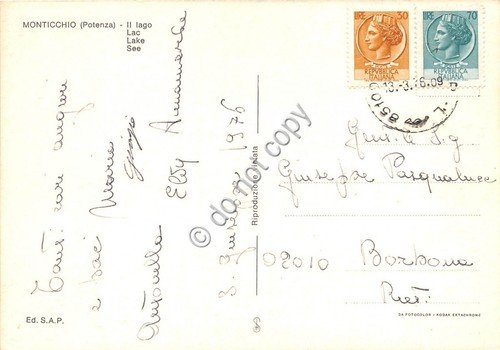 MONTICCHIO (Potenza) - Il lago
Lac
Lake
See
LIRE 30
REPVBBLICA
ITALIANA
LIRE 70
REPVBBLICA
ITALIANA
13.-3.76.09
8510
Tanti cari auguri
e baci Maria
Luigi
Antonella Eldy Annamaria
3. Giuseppe 1976
Gent.le Sig
Giuseppe Pasqualucci
02010 Borbona
Rieti
Riproduzione vietata
© do not copy
Ed. S.A.P.
DA FOTOCOLOR - KODAK EKTACHROME